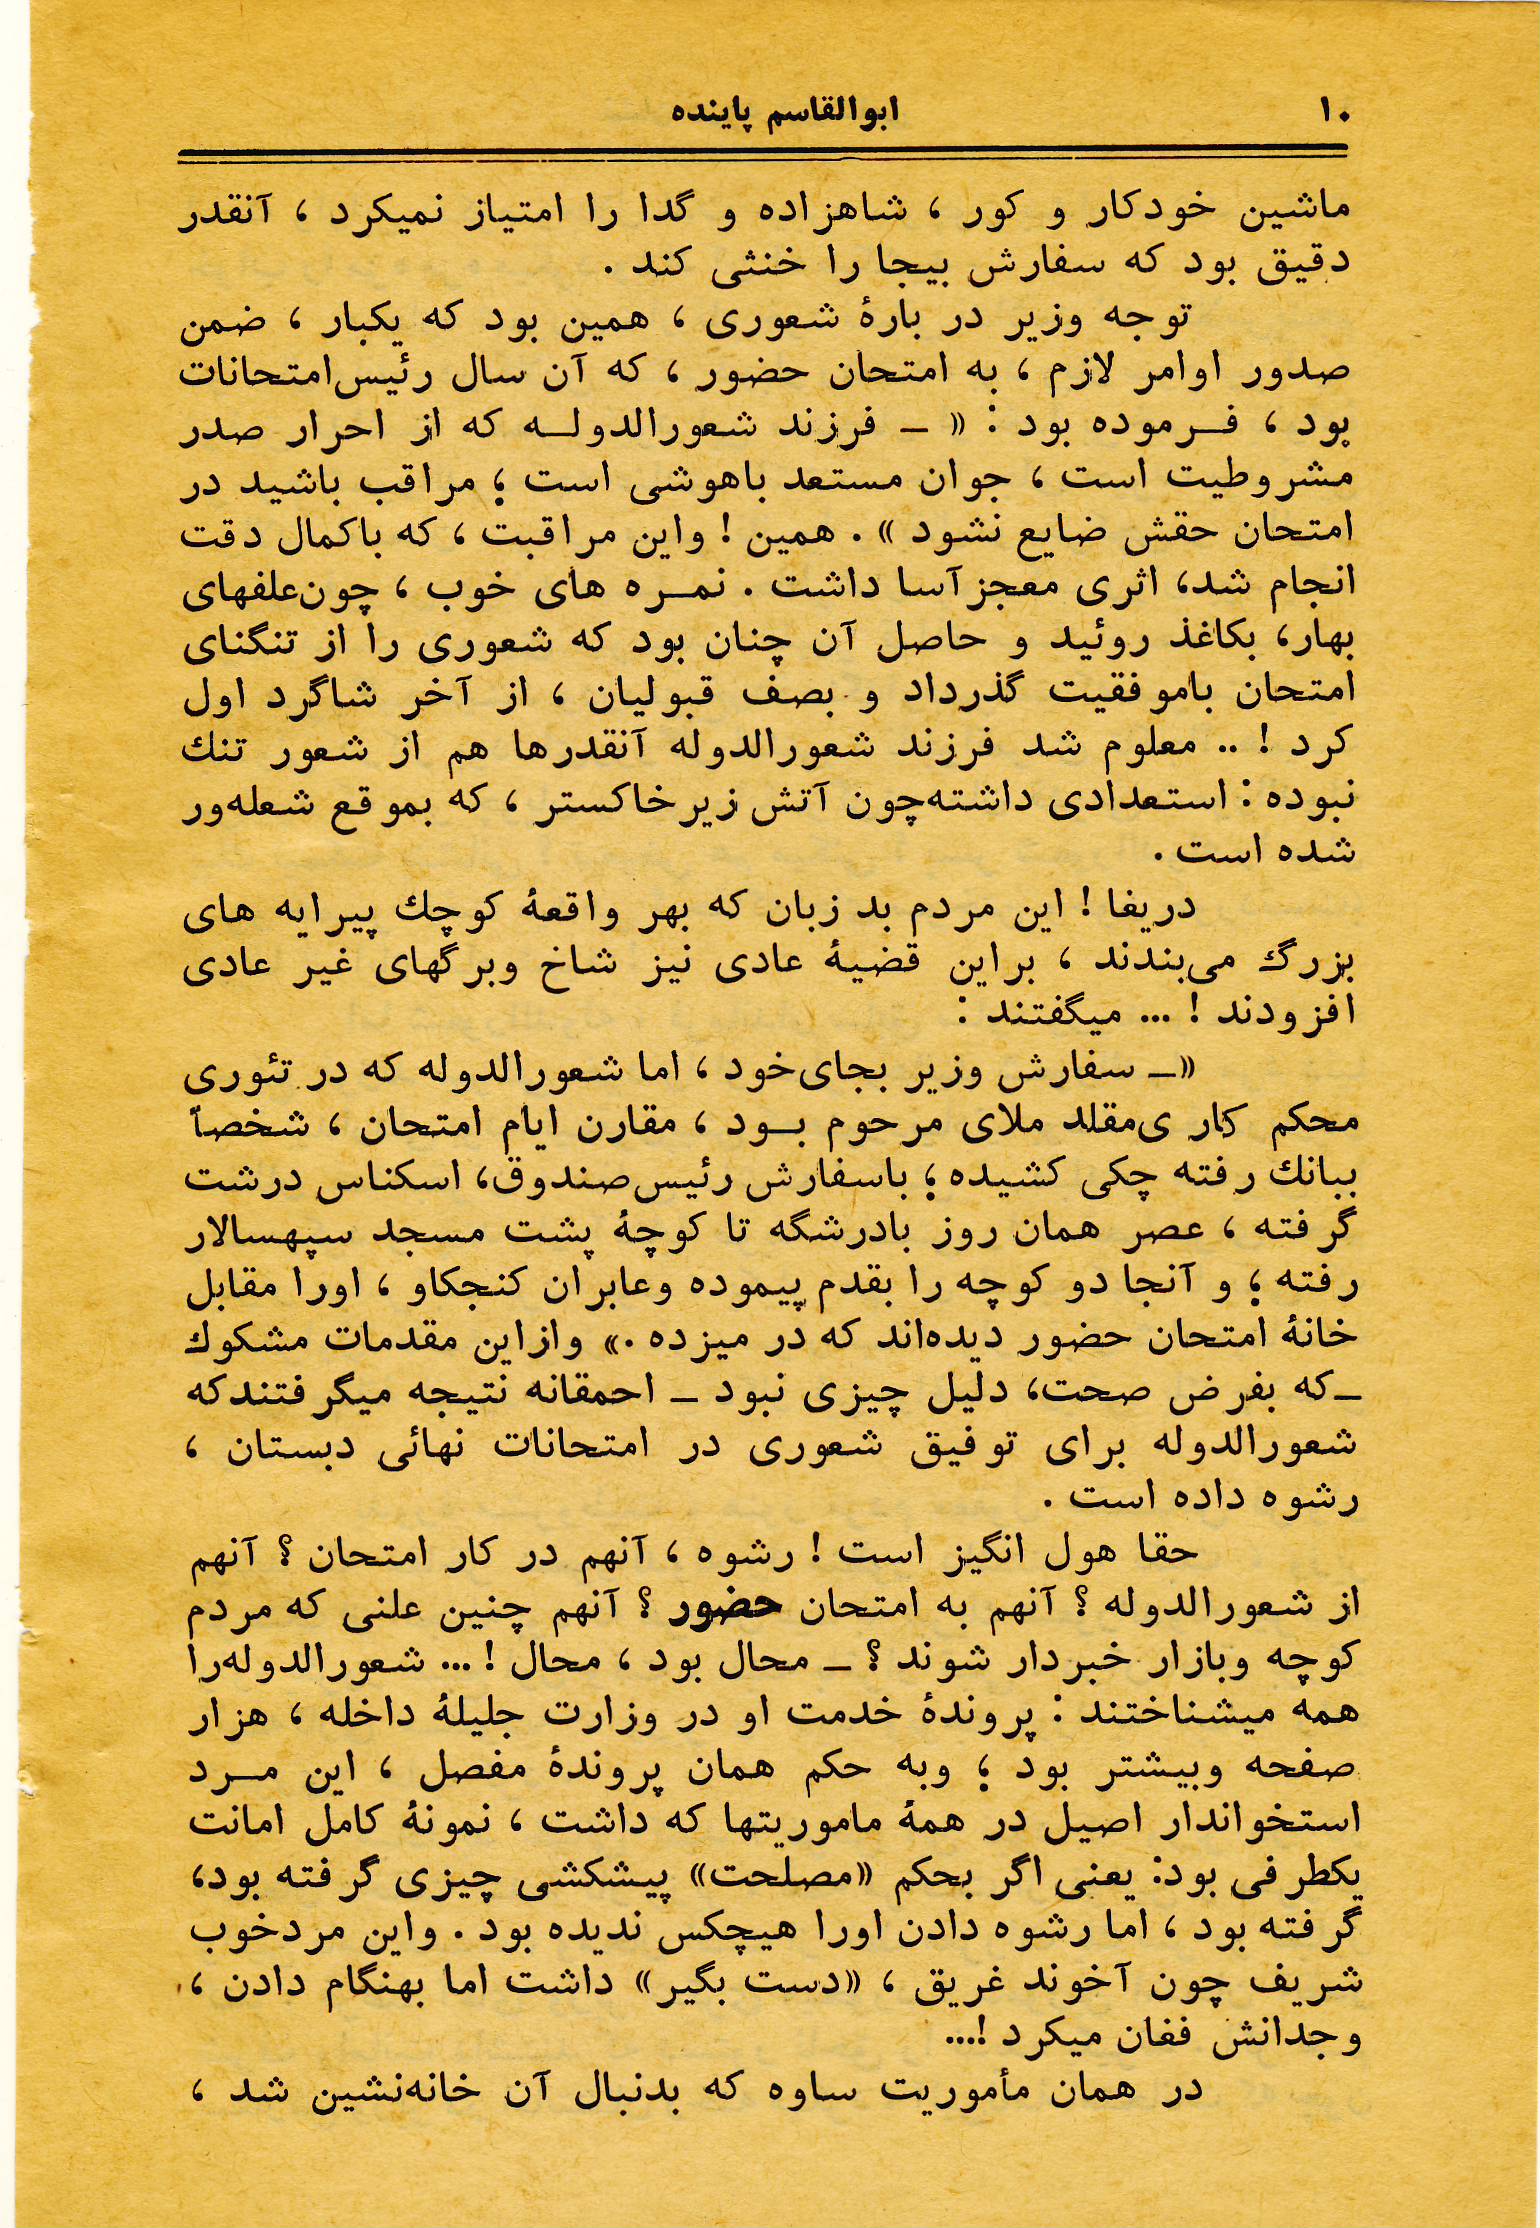 ۱۰
ابوالقاسم پاینده
ماشین خودکار و کور ، شاهزاده و گدا را امتیاز نمیکرد ، آنقدر
دقیق بود که سفارش بیجا را خنثی کند .
توجه وزیر در بارهٔ شعوری ، همین بود که یکبار ، ضمن
صدور اوامر لازم ، به امتحان حضور ، که آن سال رئیس‌امتحانات
بود ، فــرموده بود : « ـ فرزند شعورالدولــه که از احرار صدر
مشروطیت است ، جوان مستعد باهوشی است ؛ مراقب باشید در
امتحان حقش ضایع نشود » . همین ! واین مراقبت ، که باکمال دقت
انجام شد، اثری معجزآسا داشت . نمــره های خوب ، چون‌علفهای
بهار، بکاغذ روئید و حاصل آن چنان بود که شعوری را از تنگنای
امتحان باموفقیت گذرداد و بصف قبولیان ، از آخر شاگرد اول
کرد ! .. معلوم شد فرزند شعورالدوله آنقدرها هم از شعور تنك
نبوده : استعدادی داشته‌چون آتش زیرخاکستر ، که بموقع شعله‌ور
شده است .
دریغا ! این مردم بد زبان که بهر واقعهٔ کوچك پیرایه های
بزرگ می‌بندند ، براین قضیهٔ عادی نیز شاخ وبرگهای غیر عادی
افزودند ! ... میگفتند :
«ـ سفارش وزیر بجای‌خود ، اما شعورالدوله که در تئوری
محکم کار ی‌مقلد ملای مرحوم بــود ، مقارن ایام امتحان ، شخصاً
ببانك رفته چکی کشیده ؛ باسفارش رئیس‌صندوق، اسکناس درشت
گرفته ، عصر همان روز بادرشگه تا کوچهٔ پشت مسجد سپهسالار
رفته ؛ و آنجا دو کوچه را بقدم پیموده وعابران کنجکاو ، اورا مقابل
خانهٔ امتحان حضور دیده‌اند که در میزده .» وازاین مقدمات مشکوك
ـ‌که بفرض صحت، دلیل چیزی نبود ـ احمقانه نتیجه میگرفتندکه
شعورالدوله برای توفیق شعوری در امتحانات نهائی دبستان ،
رشوه داده است .
حقا هول انگیز است ! رشوه ، آنهم در کار امتحان ؟ آنهم
از شعورالدوله ؟ آنهم به امتحان حضور ؟ آنهم چنین علنی که مردم
کوچه وبازار خبردار شوند ؟ ـ محال بود ، محال ! ... شعورالدوله‌را
همه میشناختند : پروندهٔ خدمت او در وزارت جلیلهٔ داخله ، هزار
صفحه وبیشتر بود ؛ وبه حکم همان پروندهٔ مفصل ، این مــرد
استخواندار اصیل در همهٔ ماموریتها که داشت ، نمونهٔ کامل امانت
یکطرفی بود: یعنی اگر بحکم «مصلحت» پیشکشی چیزی گرفته بود،
گرفته بود ، اما رشوه دادن اورا هیچکس ندیده بود . واین مردخوب
شریف چون آخوند غریق ، «دست بگیر» داشت اما بهنگام دادن ،
وجدانش فغان میکرد !...
در همان مأموریت ساوه که بدنبال آن خانه‌نشین شد ،